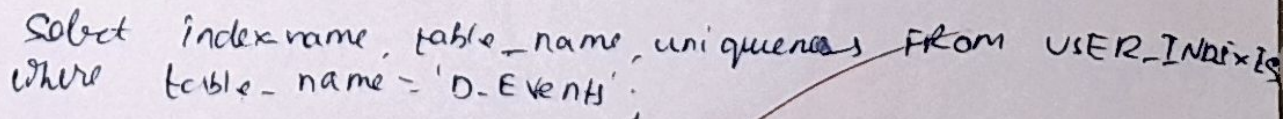 Select indexname, table_name, uniqueness FROM USER_INDEXES
where table_name = 'D_Events';